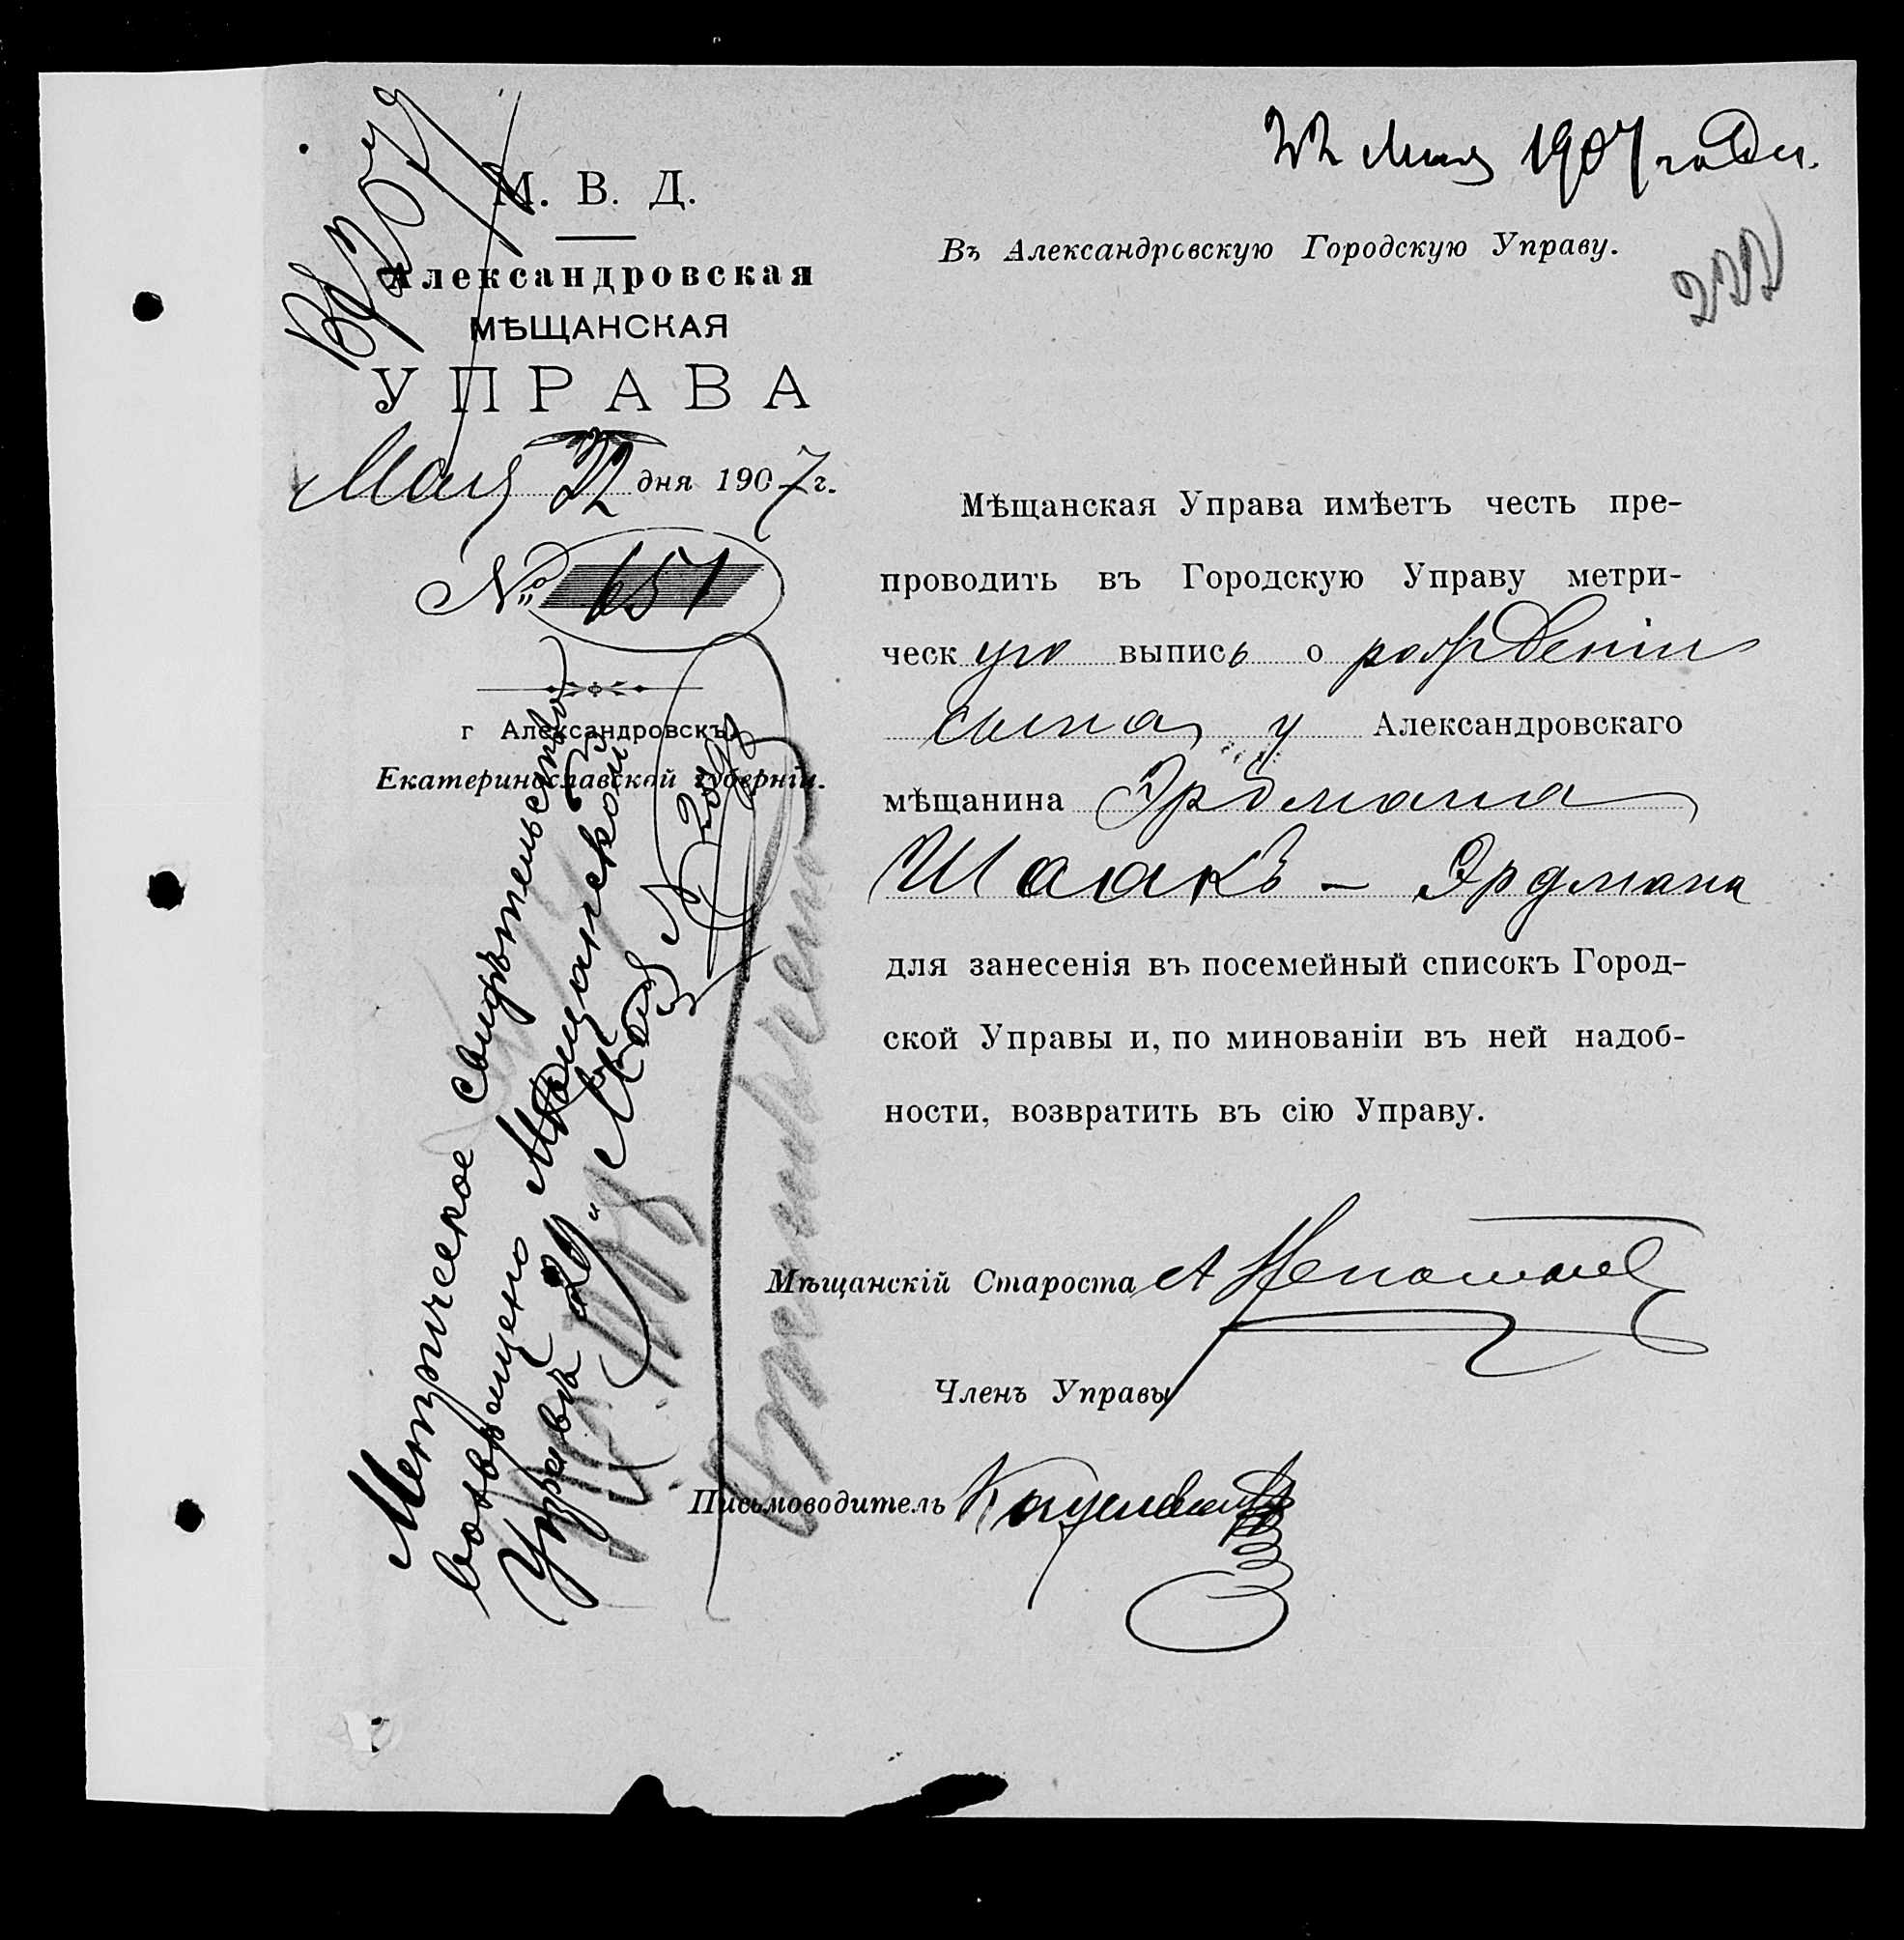 22 Мая 1907 года.
М. В. Д.
Александровская
МѢЩАНСКАЯ
УПРАВА
Мая 22 дня 1907 г.
№ 651
г Александровскъ,
Екатеринославской губерніи.
Въ Александровскую Городскую Управу.
222
Мѣщанская Управа имѣетъ честь пре-
проводить въ Городскую Управу метри-
ческую выпись о рожденіи
сына у Александровскаго
мѣщанина Эрдмана
Шаакъ - Эрдмана
для занесенія въ посемейный списокъ Город-
ской Управы и, по минованіи въ ней надоб-
ности, возвратить въ сію Управу.
Мѣщанскій Староста
Членъ Управы
Письмоводитель
Метрическое свидѣтельство
возвращено Мѣщанской
Управѣ Мая 1907